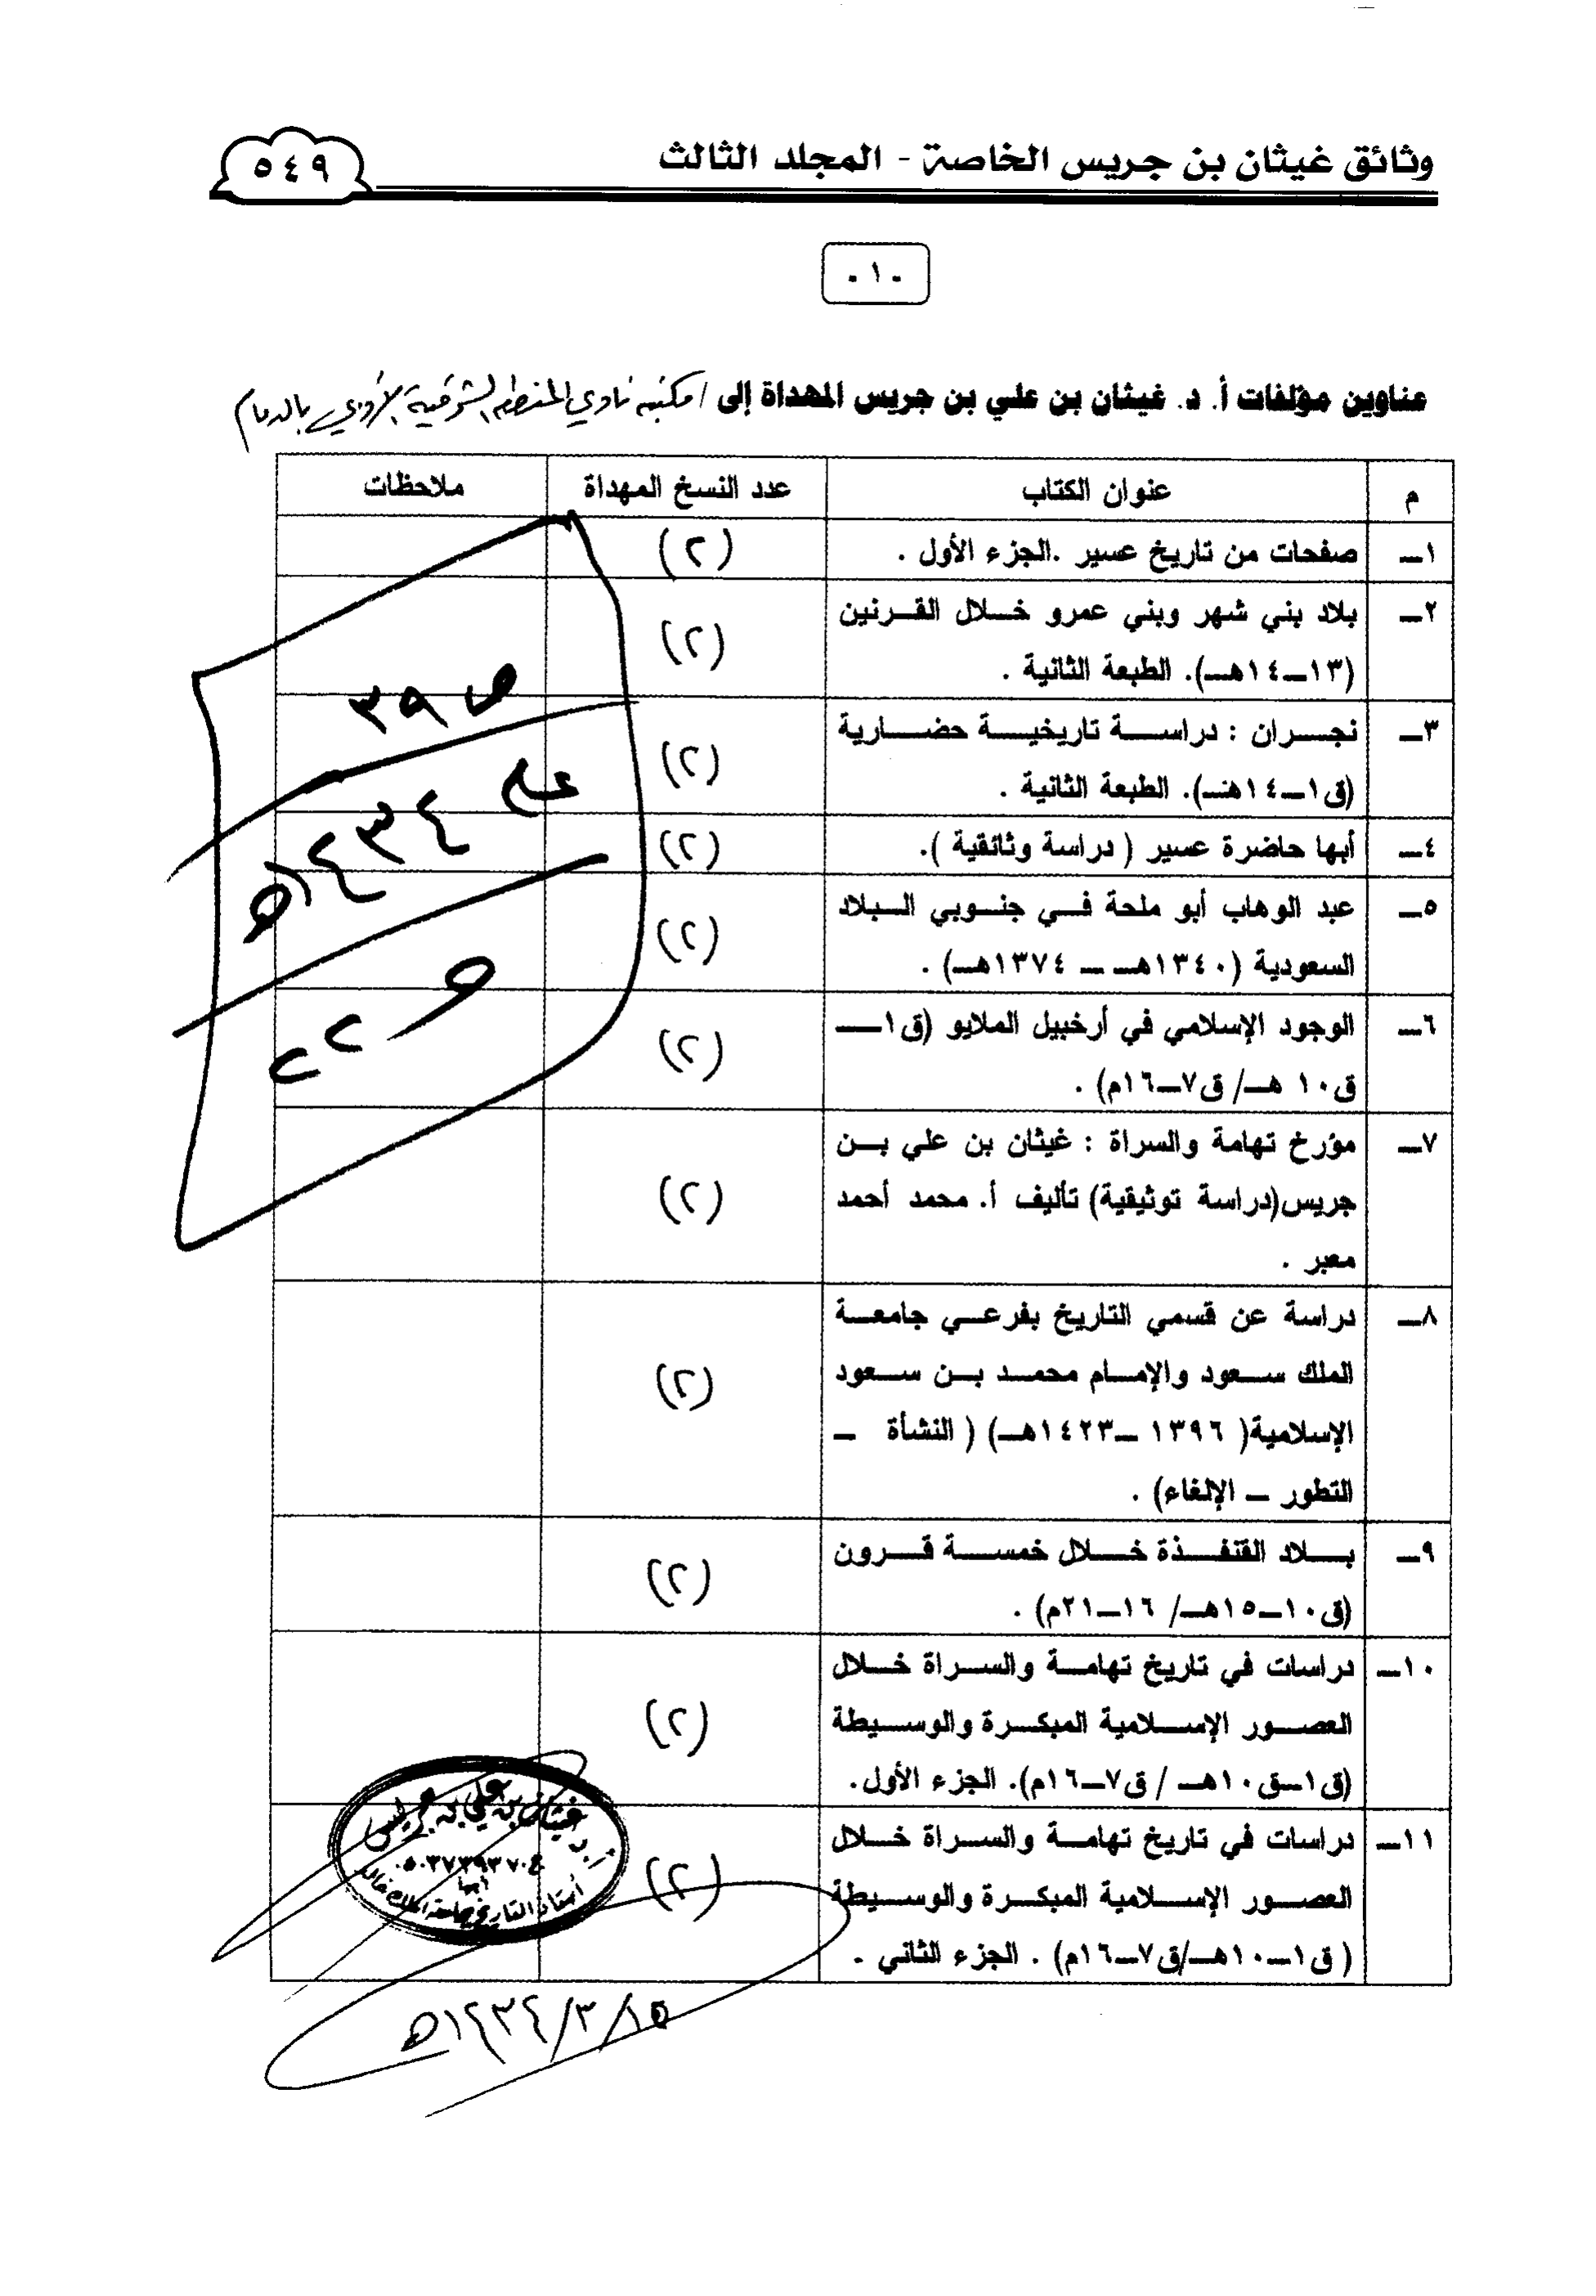 وثائق غيثان بن جريس الخاصة - المجلد الثالث
٥٤٩
٠١٠
عناوين مؤلفات أ. د. غيثان بن علي بن جريس المهداة إلى / مكتبة نادي المنطقة الشرقية الأدبي بالدمام
م عنوان الكتاب عدد النسخ المهداة ملاحظات
١ــ صفحات من تاريخ عسير .الجزء الأول . (٢)
٢ــ بلاد بني شهر وبني عمرو خلال القرنين
(١٣ــ١٤هـ). الطبعة الثانية . (٢)
٣ــ نجران : دراسة تاريخية حضارية
(ق١ــ١٤هـ). الطبعة الثانية . (٢)
٤ــ أبها حاضرة عسير ( دراسة وثائقية ). (٢)
٥ــ عبد الوهاب أبو ملحة في جنوبي البلاد
السعودية (١٣٤٠هـ ــ ١٣٧٤هـ) . (٢)
٦ــ الوجود الإسلامي في أرخبيل الملايو (ق١ــ
ق١٠ هـ/ ق٧ــ١٦م) . (٢)
٧ــ مؤرخ تهامة والسراة : غيثان بن علي بن
جريس(دراسة توثيقية) تأليف أ. محمد أحمد
معبر . (٢)
٨ــ دراسة عن قسمي التاريخ بفرعي جامعة
الملك سعود والإمام محمد بن سعود
الإسلامية( ١٣٩٦ ــ١٤٢٣هـ) ( النشأة ــ
التطور ــ الإلغاء) . (٢)
٩ــ بلاد القنفذة خلال خمسة قرون
(ق١٠ــ١٥هـ/ ١٦ــ٢١م) . (٢)
١٠ــ دراسات في تاريخ تهامة والسراة خلال
العصور الإسلامية المبكرة والوسيطة
(ق١ــق١٠هـ / ق٧ــ١٦م). الجزء الأول. (٢)
١١ــ دراسات في تاريخ تهامة والسراة خلال
العصور الإسلامية المبكرة والوسيطة
( ق١ــ١٠هـ/ق٧ــ١٦م) . الجزء الثاني . (٢)
ص ٣٩
١٤٣٤هـ
و ٢٢
أ.د غيثان بن علي بن جريس
ج ٠٥٠٣٧٣٩٣٧٠
أبها
أستاذ التاريخ بجامعة الملك خالد
١٥/٣/١٤٣٤هـ